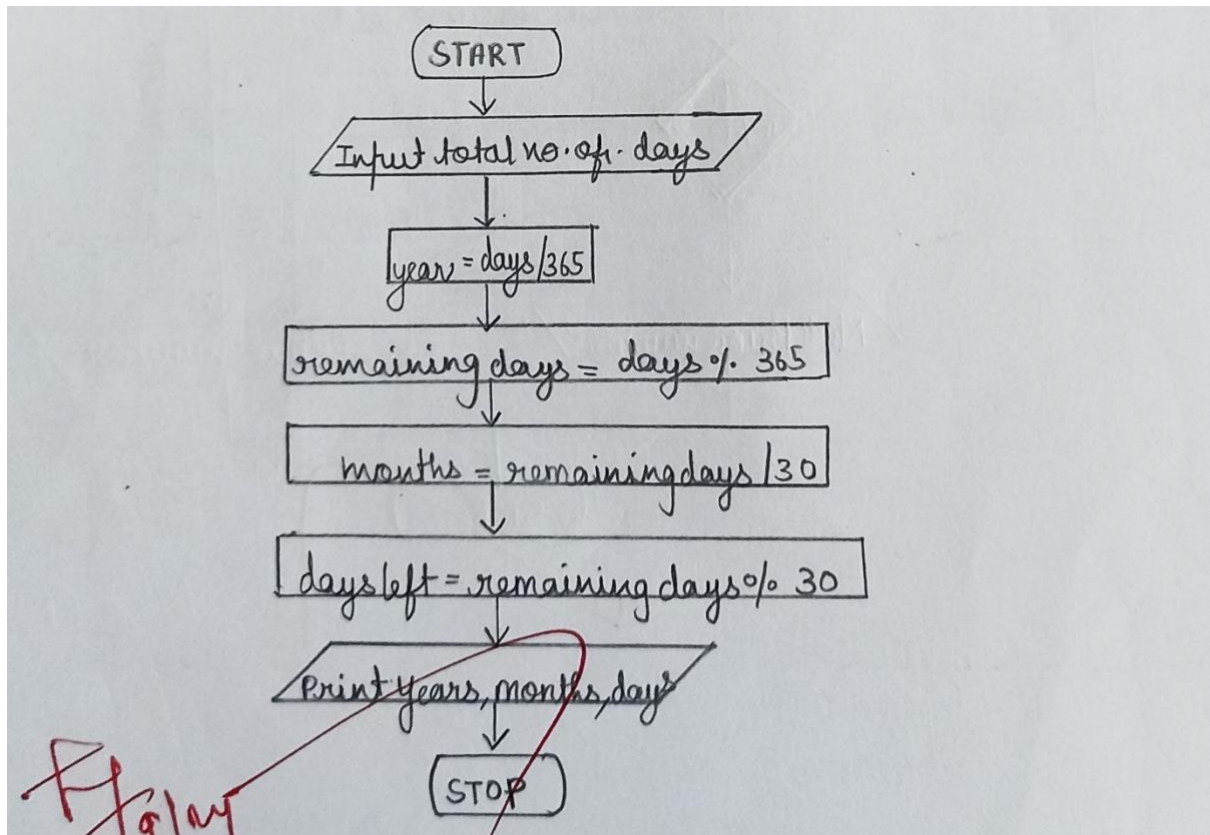 START
Input total no. of. days
year = days/365
remaining days = days % 365
months = remainingdays /30
days left = remaining days % 30
Print years, months, days
STOP